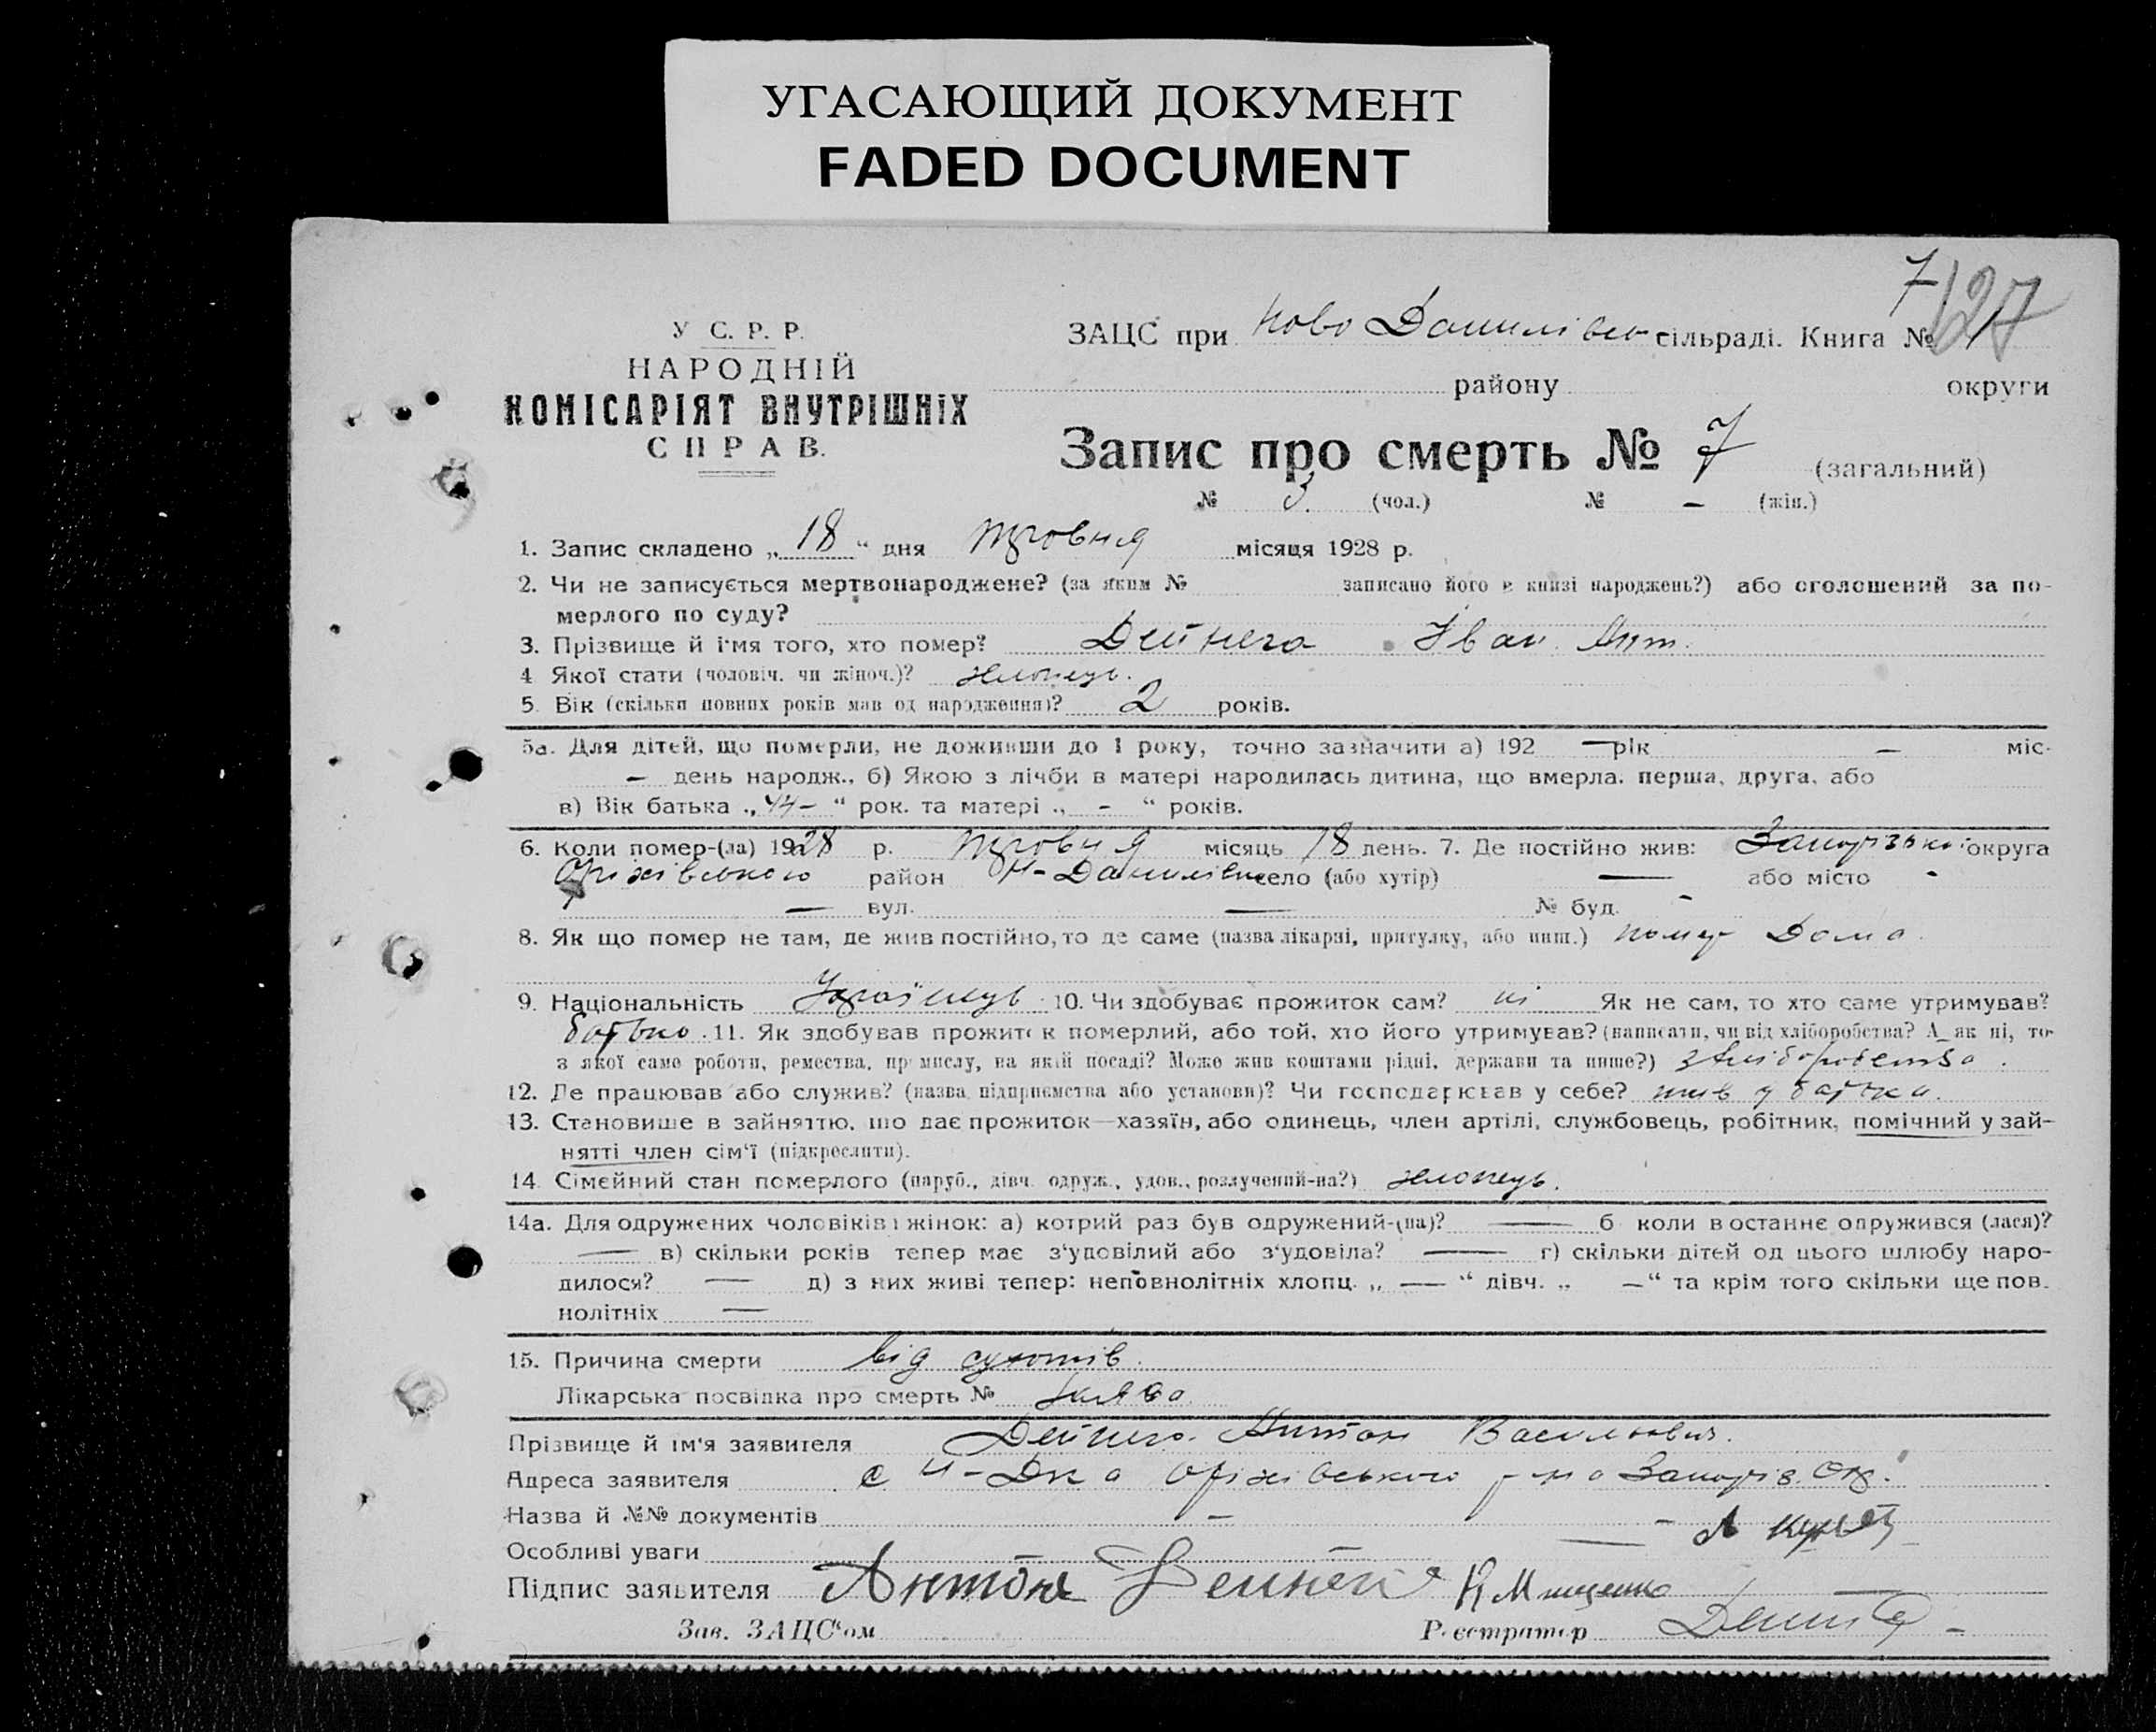 УГАСАЮЩИЙ ДОКУМЕНТ
FADED DOCUMENT
7
127
У С. Р. Р.
НАРОДНІЙ
КОМІСАРІЯТ ВНУТРІШНІХ
СПРАВ.
ЗАЦС при Ново Данилівсь сільраді. Книга № 1
району округи
Запис про смерть № 7 (загальний)
№ 3 (чол.) № – (жін.)
1. Запис складено „ 18 “ дня травня місяця 1928 р.
2. Чи не записується мертвонароджене? (за яким № записано його в книзі народжень?) або оголошений за по-
мерлого по суду?
3. Прізвище й ім'я того, хто помер? Дейнега Іван Ант.
4 Якої стати (чоловіч. чи жіноч.)? хлопець.
5. Вік (скільки повних років мав од народження)? 2 років.
5а. Для дітей, що померли, не доживши до 1 року, точно зазначити а) 192 — рік — міс.
– день народж., б) Якою з лічби в матері народилась дитина, що вмерла. перша, друга, або
в) Вік батька „ 44– “ рок. та матері „ - “ років.
6. Коли помер-(ла) 1928 р. травня місяць 18 день. 7. Де постійно жив: Запорізької округа
Оріхівського район Н-Данилівка село (або хутір) — або місто -
— вул. — № буд. -
8. Як що помер не там, де жив постійно, то де саме (назва лікарні, притулку, або инш.) помер Дома
9. Національність Українець 10. Чи здобуває прожиток сам? ні Як не сам, то хто саме утримував?
батько. 11. Як здобував прожиток померлий, або той, хто його утримував? (написати, чи від хліборобства? А як ні, то
з якої саме роботи, ремества, промислу, на якій посаді? Може жив коштами рідні, держави та инше?) з хліборобства.
12. Де працював або служив? (назва підприємства або установи)? Чи господарював у себе? жив у батька.
13. Становище в зайняттю, що дає прожиток—хазяїн, або одинець, член артілі, службовець, робітник, помічний у зай-
нятті член сім'ї (підкреслити).
14. Сімейний стан померлого (паруб., дівч. одруж., удов., розлучений-на?) хлопець.
14а. Для одружених чоловіків і жінок: а) котрий раз був одружений-(на)? — б коли в останнє одружився (лася)?
— в) скільки років тепер має з'удовілий або з'удовіла? — г) скільки дітей од цього шлюбу наро-
дилося? — д) з них живі тепер: неповнолітніх хлопц. „ — “ дівч. „ —“ та крім того скільки ще пов.
нолітніх —
15. Причина смерти від сухотів.
Лікарська посвідка про смерть №
Прізвище й ім'я заявителя Дейнега Антон Васильович.
Адреса заявителя с Н-Дка Оріхівського р-на Запоріз. Окр.
Назва й №№ документів – –
Особливі уваги —
Підпис заявителя Антон Дейнега К Мищенко
Зав. ЗАЦС'ом Реєстратор